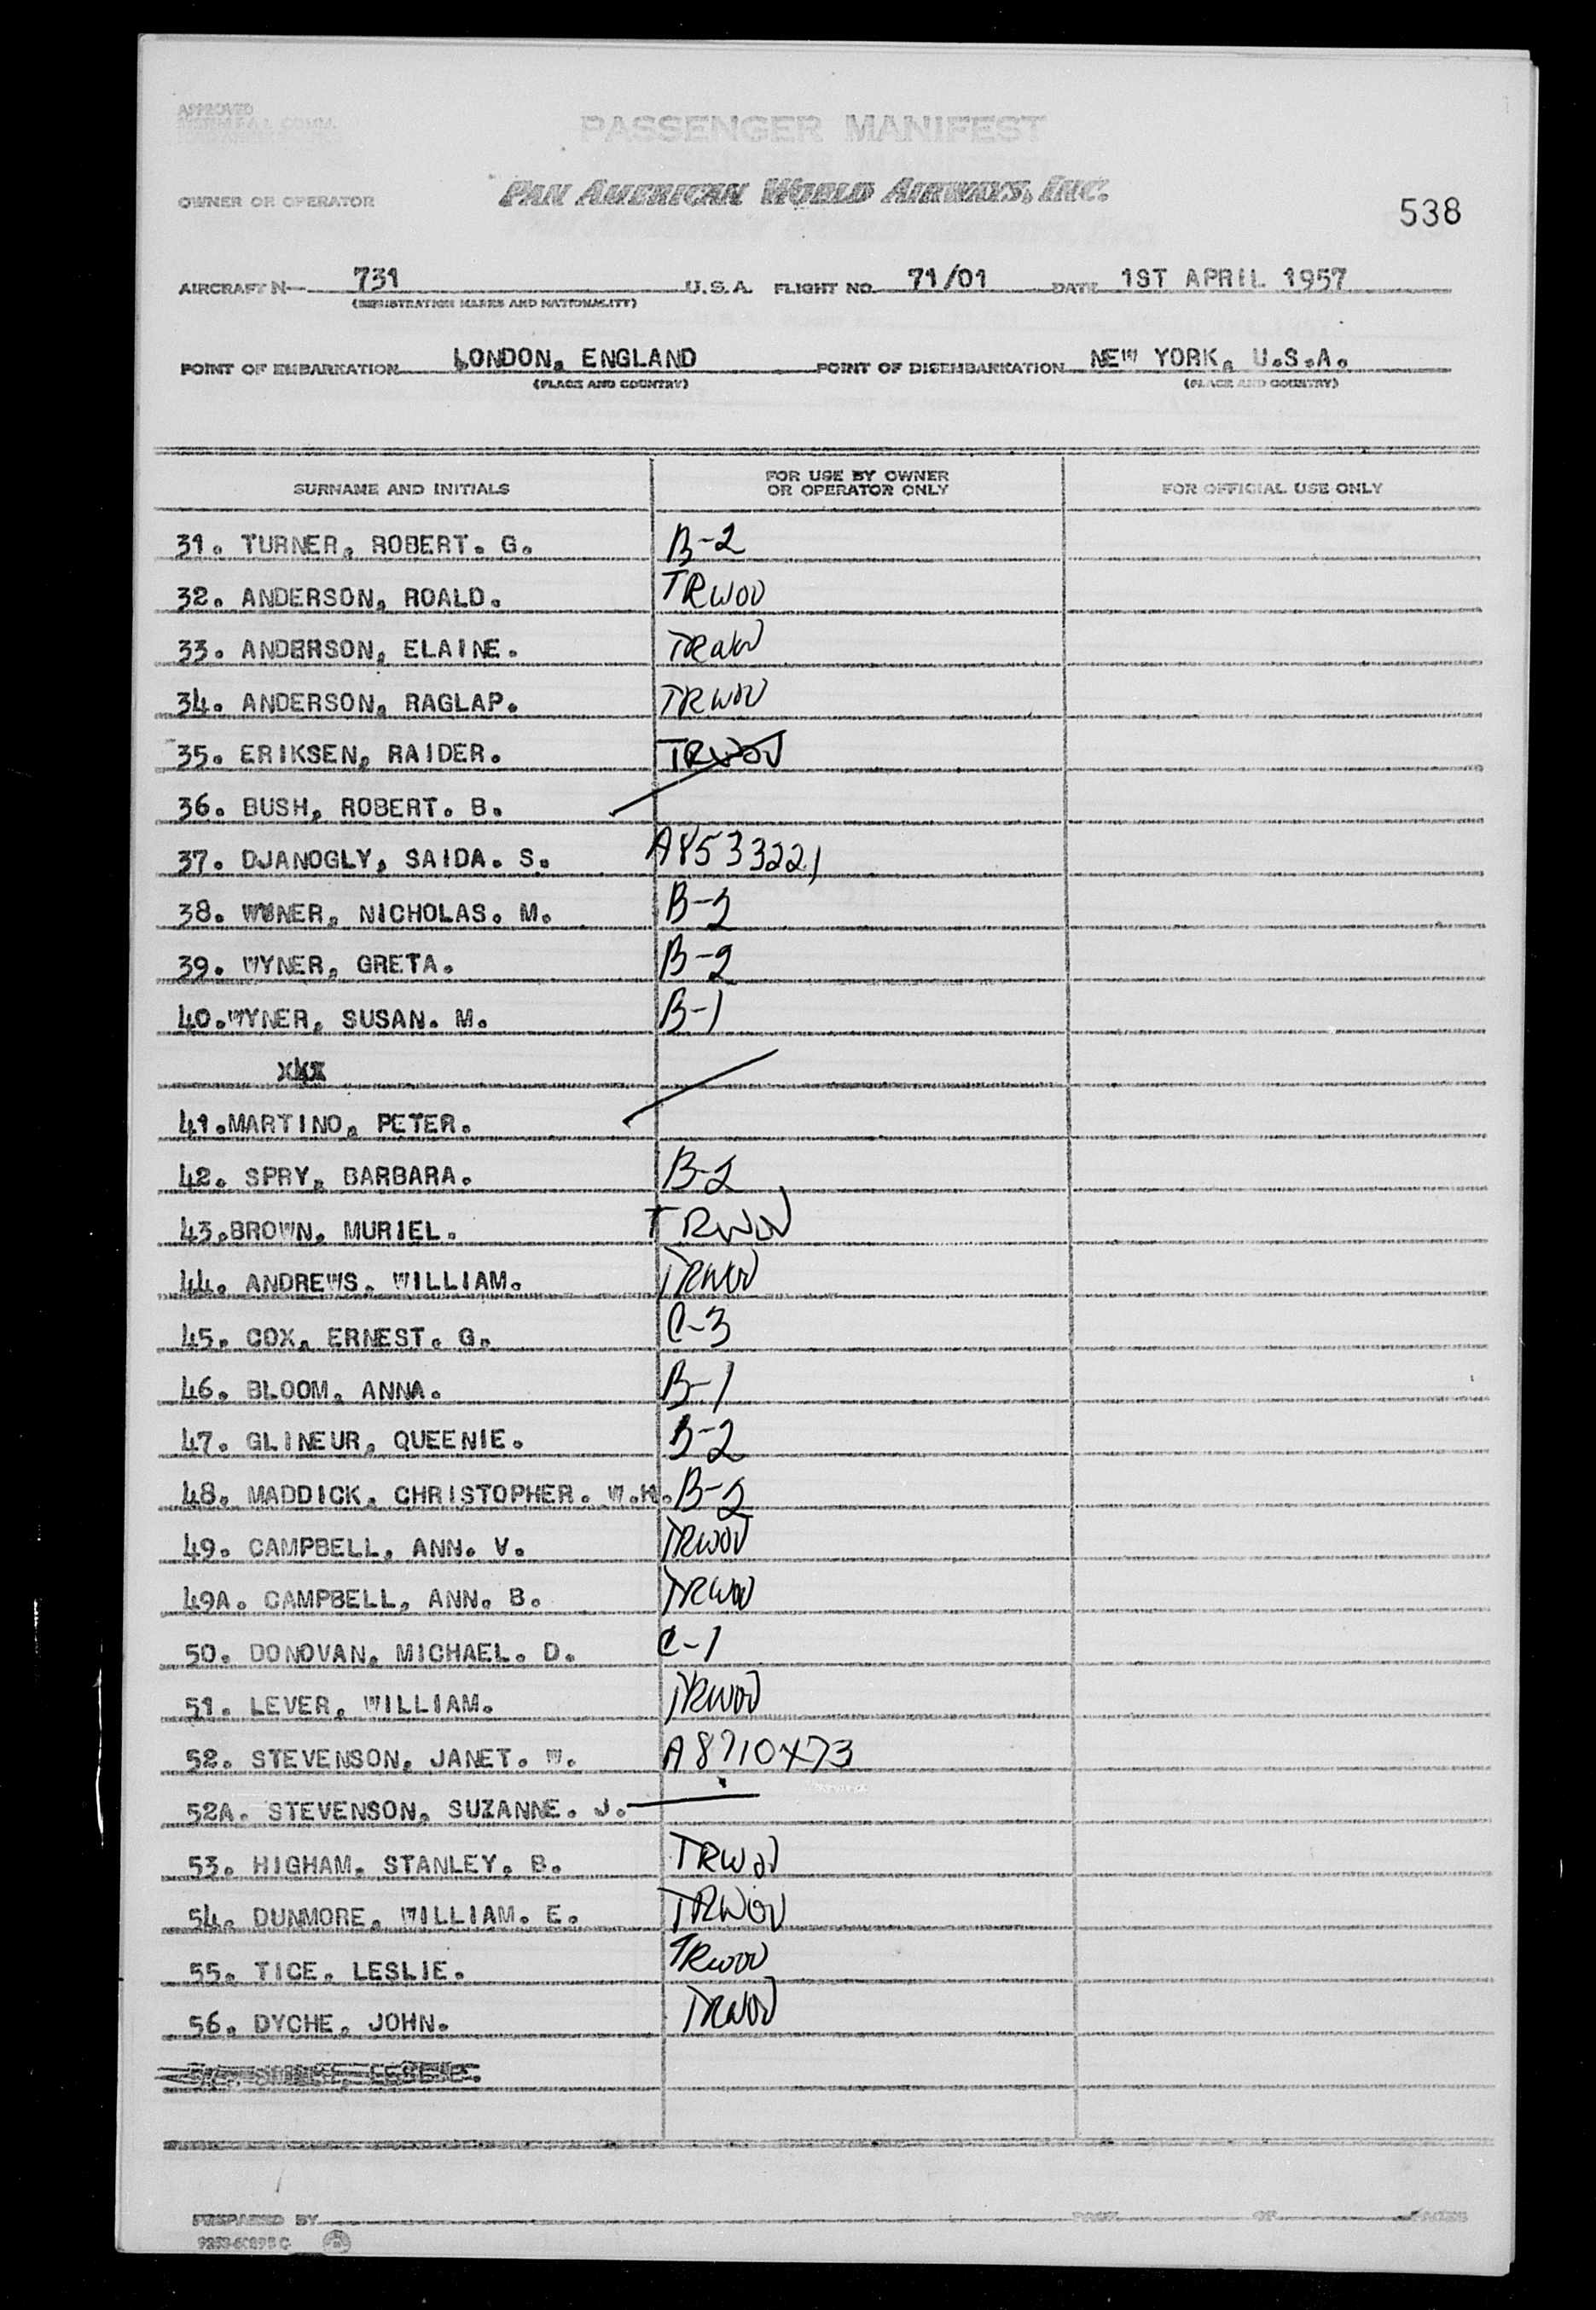 APPROVED
PASSENGER MANIFEST
OWNER OR OPERATOR
PAN AMERICAN WORLD AIRWAYS, INC.
538
AIRCRAFT N— 731 U.S.A. FLIGHT NO. 71/01 DATE 1ST APRIL 1957
(REGISTRATION MARKS AND NATIONALITY)
POINT OF EMBARKATION LONDON, ENGLAND POINT OF DISEMBARKATION NEW YORK, U.S.A.
(PLACE AND COUNTRY) (PLACE AND COUNTRY)
SURNAME AND INITIALS FOR USE BY OWNER OR OPERATOR ONLY FOR OFFICIAL USE ONLY
31. TURNER, ROBERT. G. B-2
32. ANDERSON, ROALD. TRWOV
33. ANDERSON, ELAINE. TRWOV
34. ANDERSON, RAGLAP. TRWOV
35. ERIKSEN, RAIDER. TRWOV
36. BUSH, ROBERT. B.
37. DJANOGLY, SAIDA. S. A8533221
38. WYNER, NICHOLAS. M. B-2
39. WYNER, GRETA. B-2
40.WYNER, SUSAN. M. B-1
xxx
41.MARTINO, PETER.
42. SPRY, BARBARA. B-2
43.BROWN, MURIEL. TRWOV
44. ANDREWS. WILLIAM. TRWOV
45. COX, ERNEST. G. C-3
46. BLOOM, ANNA. B-1
47. GLINEUR, QUEENIE. B-2
48. MADDICK, CHRISTOPHER. W.H. B-2
49. CAMPBELL, ANN. V. TRWOV
49A. CAMPBELL, ANN. B. TRWOV
50. DONOVAN, MICHAEL. D. C-1
51. LEVER, WILLIAM. TRWOV
52. STEVENSON, JANET. W. A8710473
52A. STEVENSON, SUZANNE. J.
53. HIGHAM, STANLEY. B. TRWOV
54. DUNMORE, WILLIAM. E. TRWOV
55. TICE, LESLIE. TRWOV
56. DYCHE, JOHN. TRWOV
PREPARED BY PAGE OF PAGES